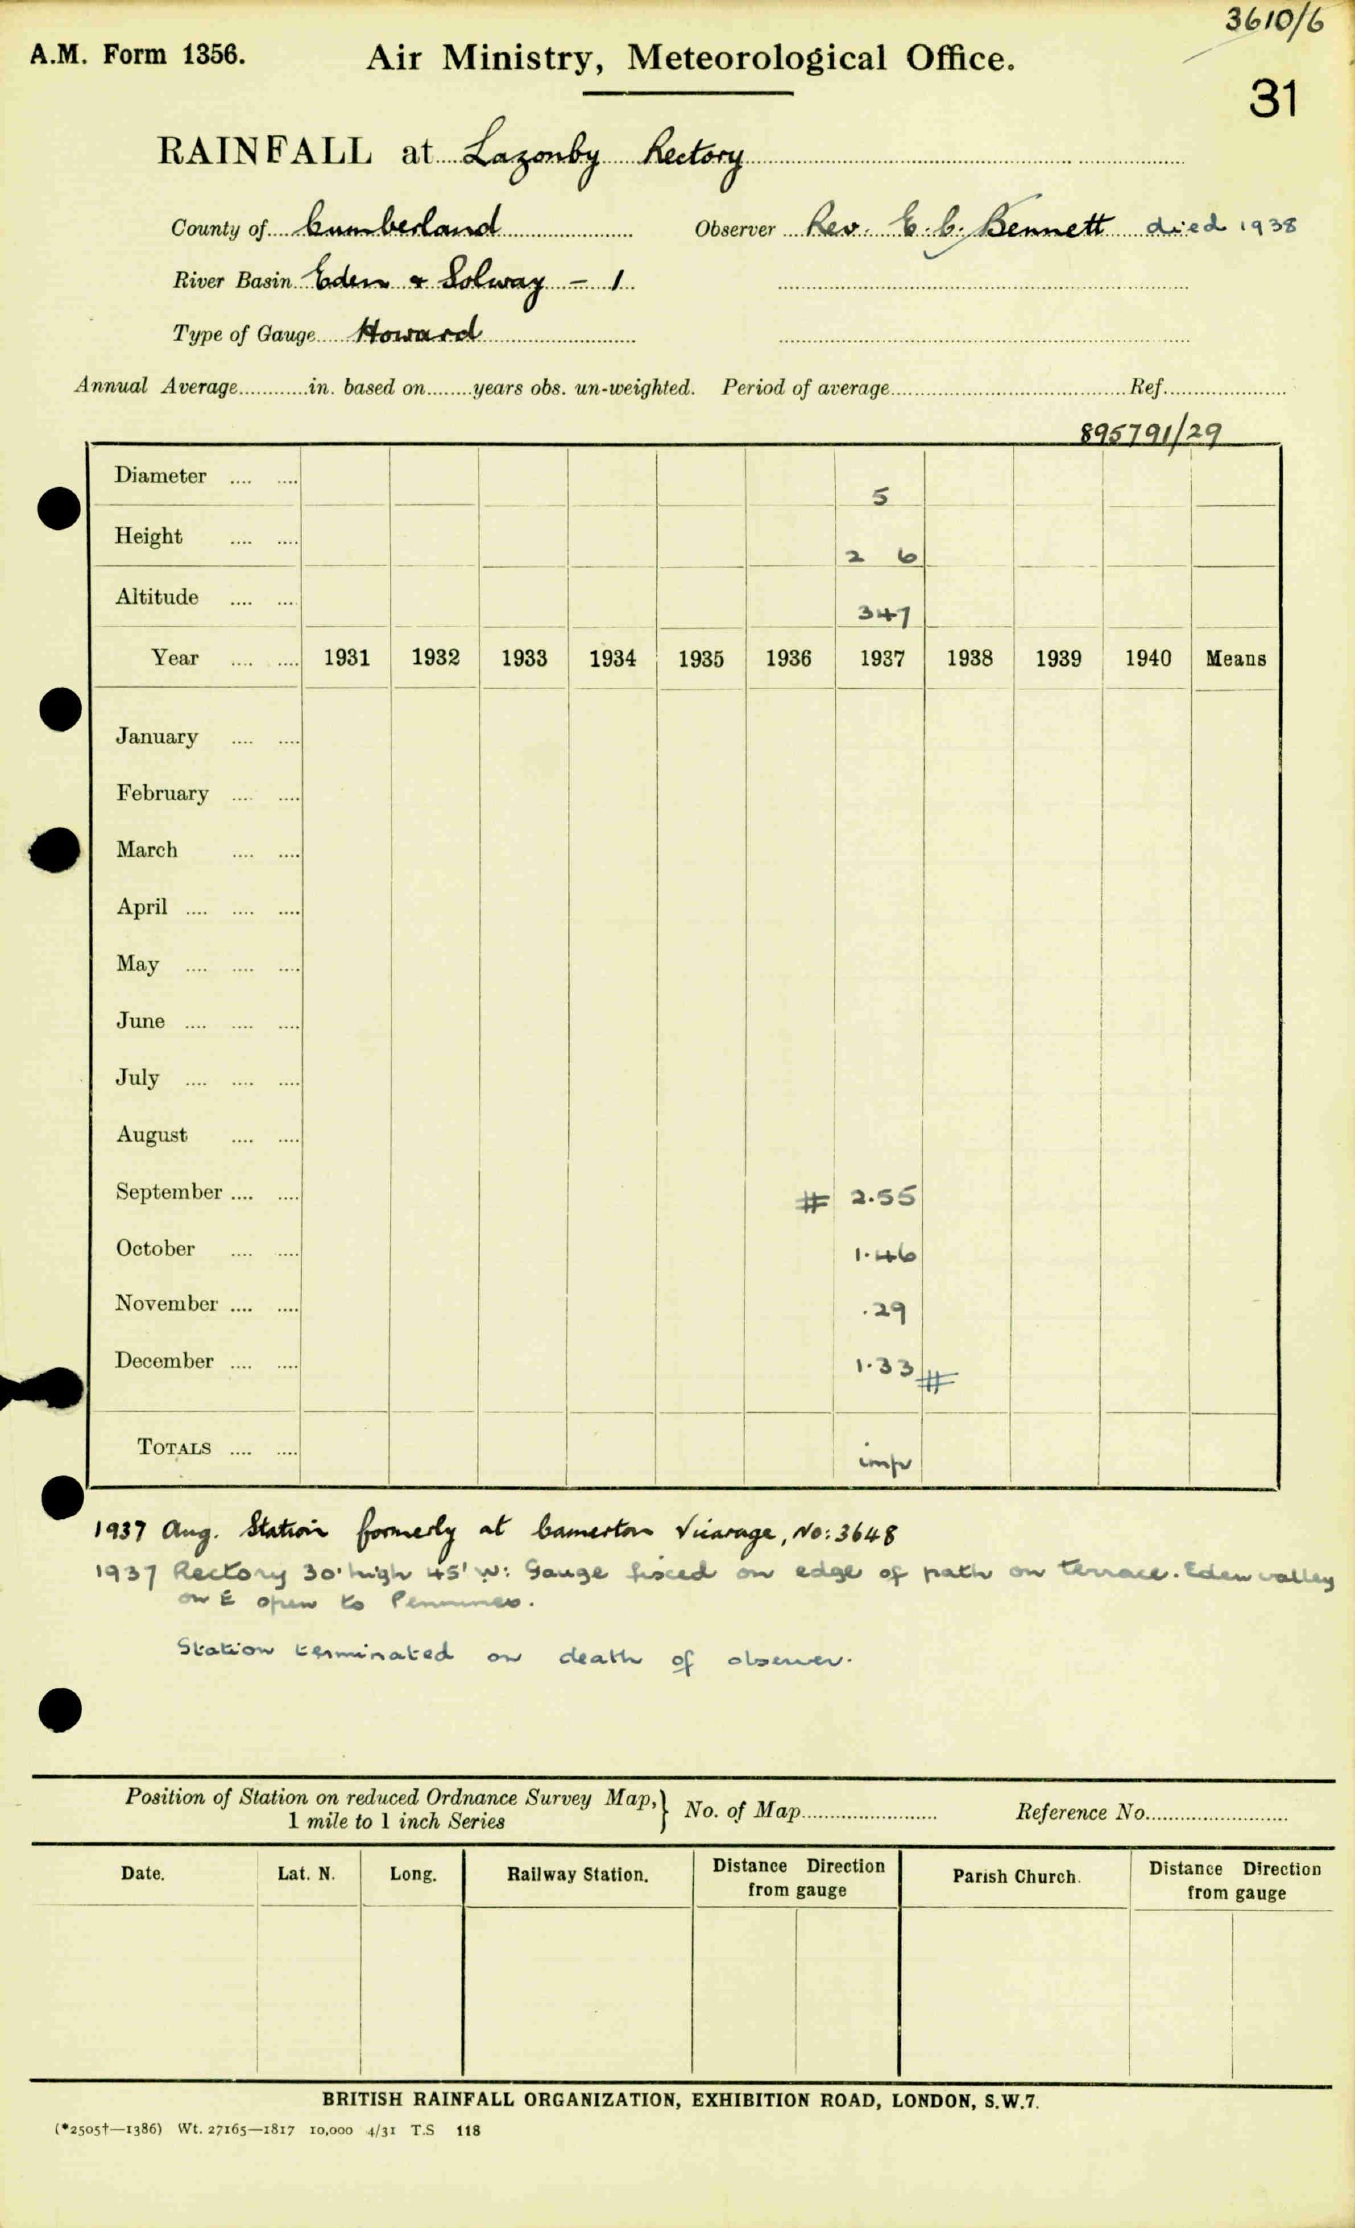 3610/6
A.M. Form 1356.
Air Ministry, Meteorological Office.
31
RAINFALL at Lazonby Rectory
County of Cumberland Observer Rev. E. C. Bennett died 1938
River Basin Eden & Solway - 1
Type of Gauge Howard
Annual Average............in. based on........years obs. un-weighted. Period of average............ Ref............
895791/29
Diameter .... .... 5
Height .... .... 2 6
Altitude .... .... 347
Year .... .... 1931 1932 1933 1934 1935 1936 1937 1938 1939 1940 Means
January .... ....
February .... ....
March .... ....
April .... .... ....
May .... .... ....
June .... .... ....
July .... .... ....
August .... ....
September .... .... # 2.55
October .... .... 1.46
November .... .... .29
December .... .... 1.33 #
TOTALS .... .... imp
1937 Aug. Station formerly at Camerton Vicarage, No: 3648
1937 Rectory 30' high 45' W: Gauge fixed on edge of path on terrace. Eden valley
on E open to Pennines.
Station terminated on death of observer.
Position of Station on reduced Ordnance Survey Map,} No. of Map............ Reference No............
1 mile to 1 inch Series
Date. Lat. N. Long. Railway Station. Distance Direction from gauge Parish Church. Distance Direction from gauge
BRITISH RAINFALL ORGANIZATION, EXHIBITION ROAD, LONDON, S.W.7.
(*2505†—1386) Wt. 27165—1817 10,000 4/31 T.S 118